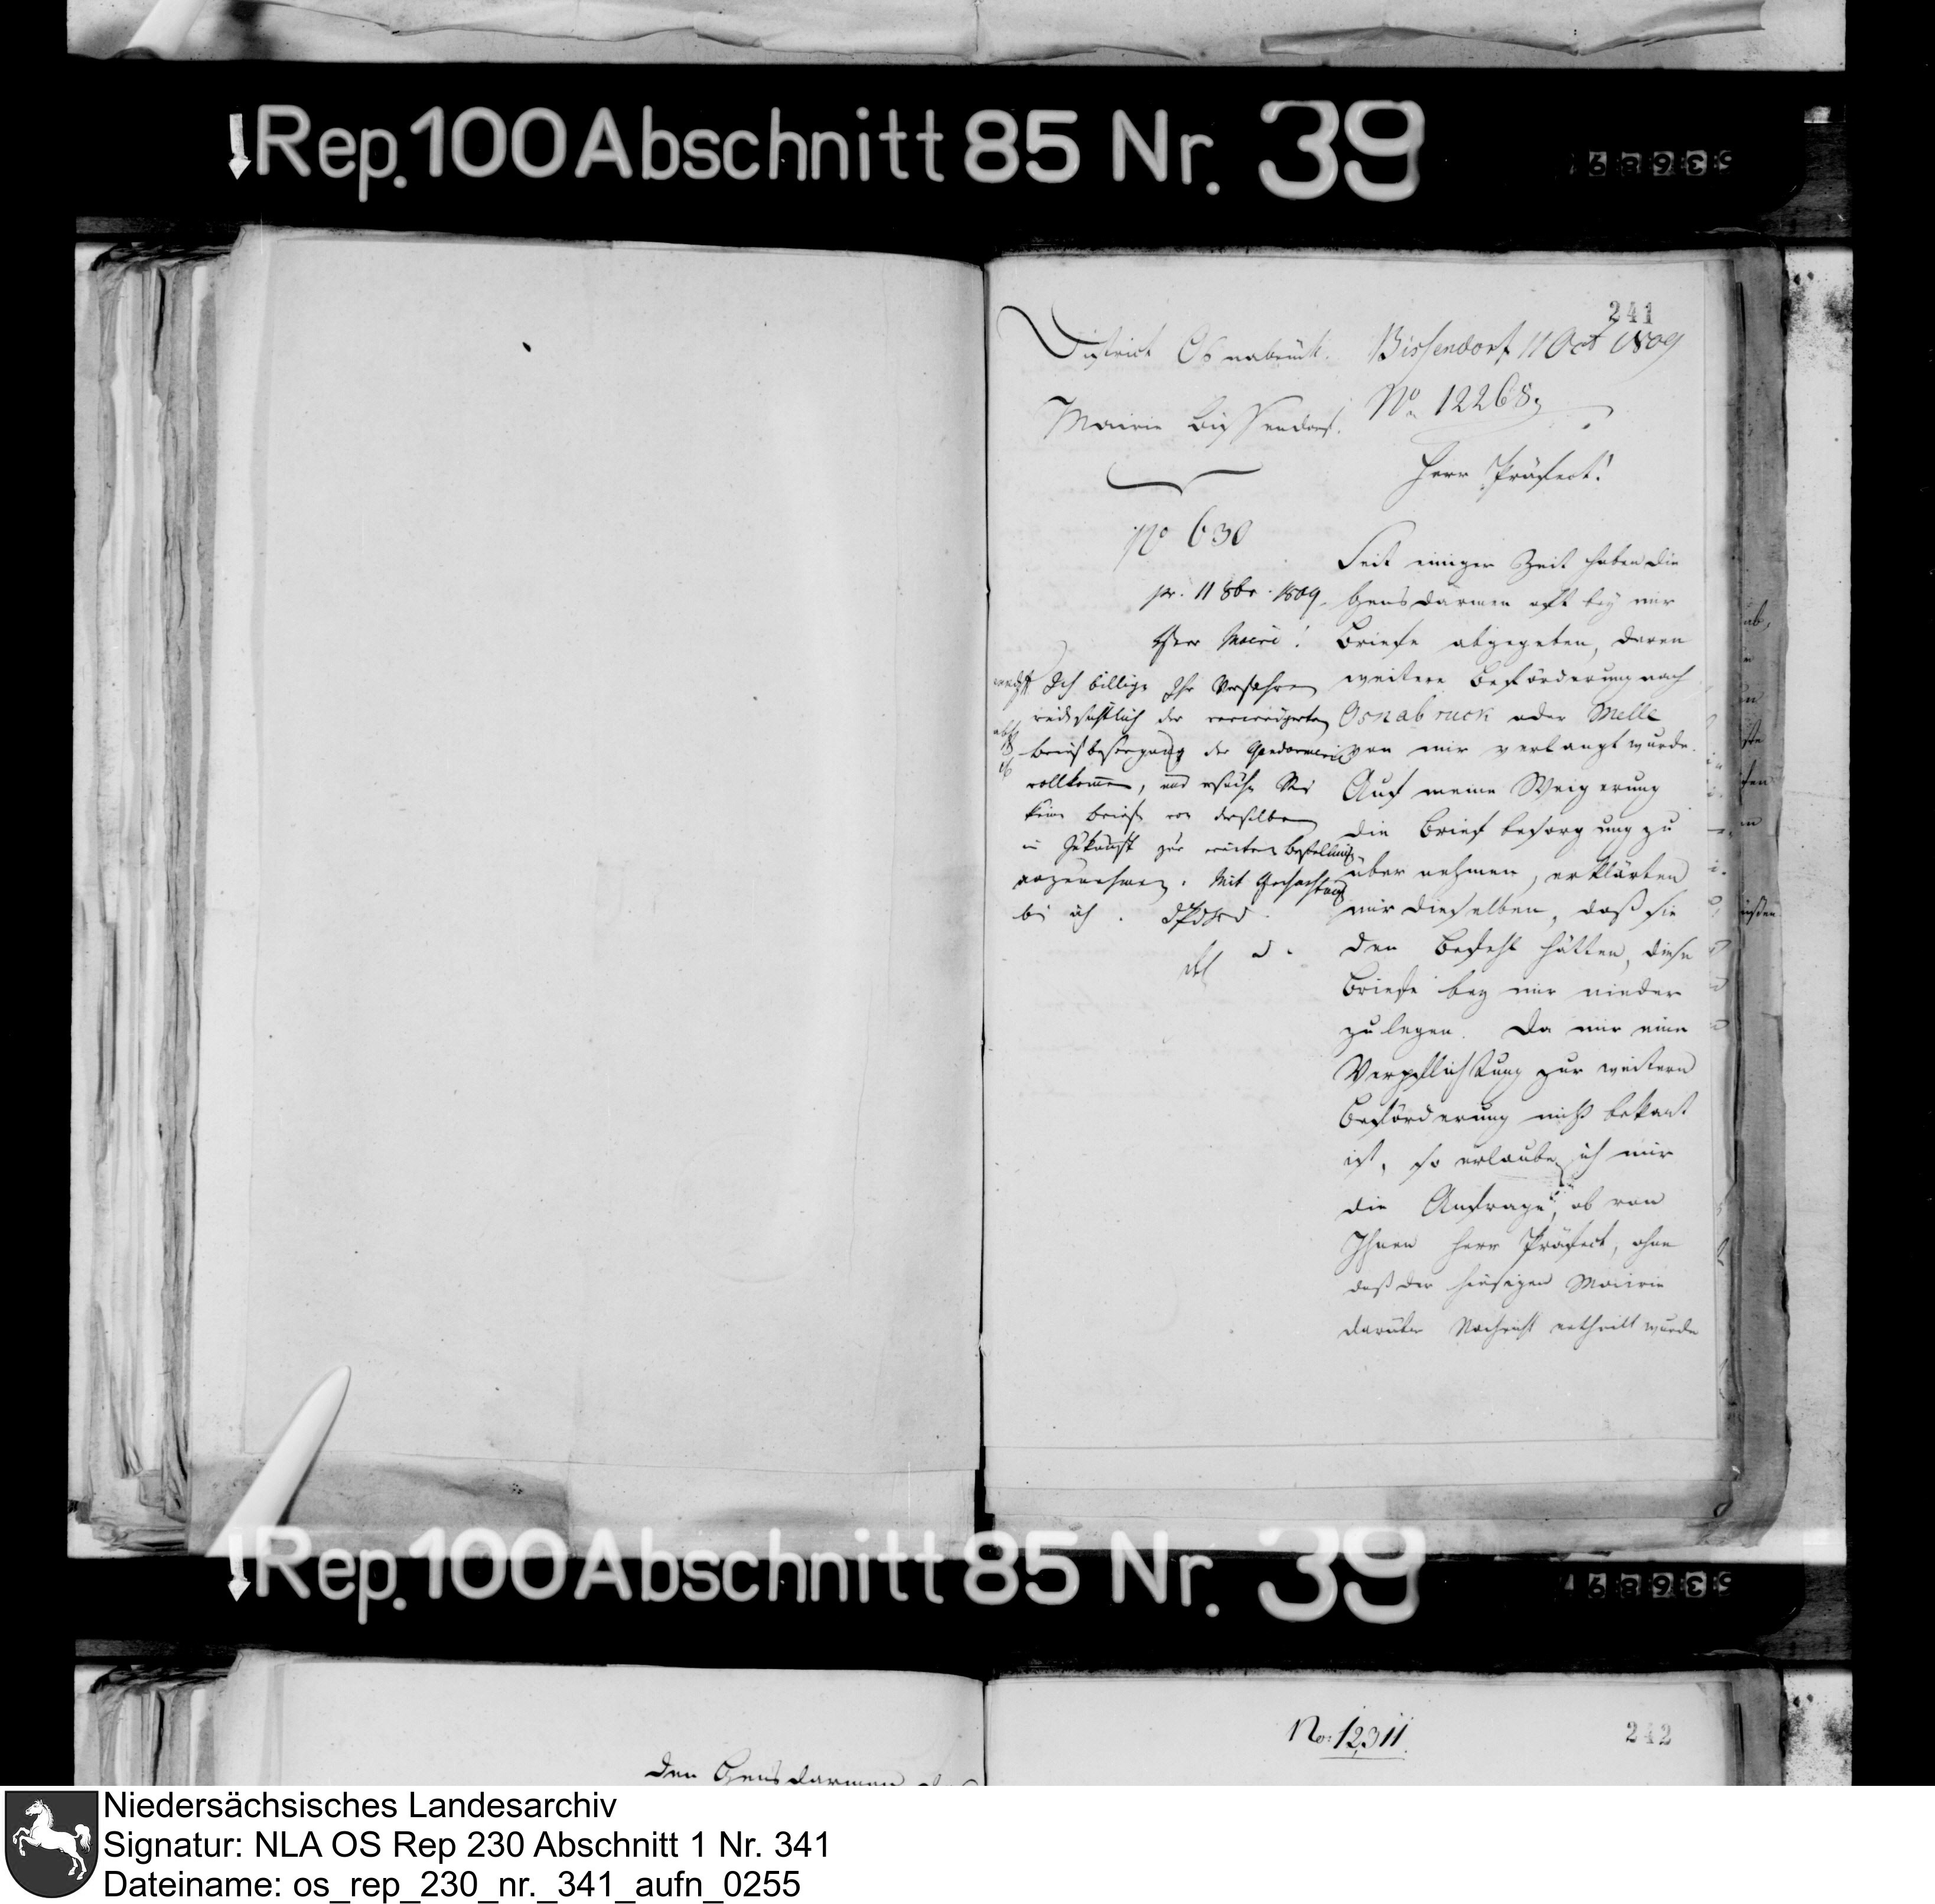 Rep. 100 Abschnitt 85 Nr. 39
241
District Osnabrück.
Mairie Bissendorf.
No 630
pr. 11 8br. 1809.
Herr Maire!
Ich billige Ihr Verfahren
rücksichtlich der verweigerten
Briefbesorgung der Gendarmerie
vollkommen, und ersuche Sie
keine Briefe von derselben
in Zukunft zur weitern Bestellung
anzunehmen. Mit Hochachtung
bin ich.
Bissendorf 11 Oct 1809
No. 12268,
Herr Präfect!
Seit einiger Zeit haben die
Gensdarmen oft bey mir
Briefe abgegeben, deren
weitere Beförderung nach
Osnabruck oder Melle
von mir verlangt wurde.
Auf meine Weigerung
die Brief besorgung zu
über nehmen, erklärten
mir dieselben, daß sie
den Befehl hätten, diese
Briefe bey mir nieder
zu legen. Da mir eine
Verpflichtung zur weitern
Beförderung nicht bekant
ist, so erlaube ich mir
die Anfrage, ob von
Ihnen Herr Präfect, ohne
daß der hiesigen Mairie
darüber Nachricht ertheilt wurde
Rep. 100 Abschnitt 85 Nr. 39
den Gensdarmen
No: 12311.
242
Niedersächsisches Landesarchiv
Signatur: NLA OS Rep 230 Abschnitt 1 Nr. 341
Dateiname: os_rep_230_nr._341_aufn_0255